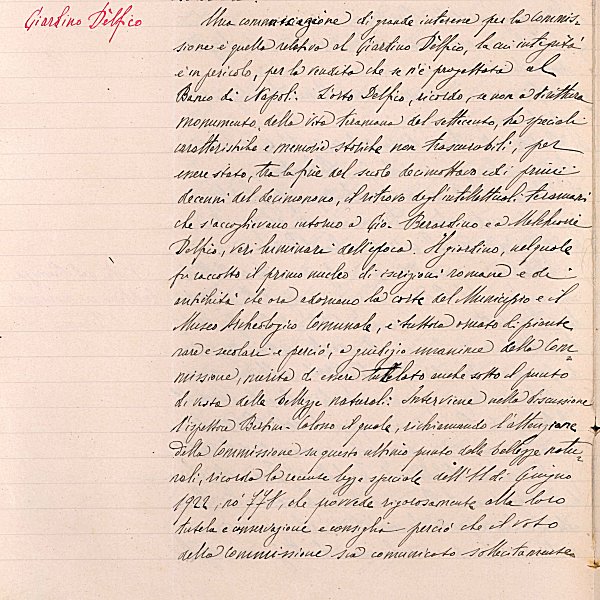 Giardino Dèlfico
Una comunicazione di grande interesse per la Commis-
sione è quella relativa al Giardino Dèlfico, la cui integrità
è in pericolo, per la vendita che se n'è progettata al
Banco di Napoli. L'orto Delfico, ricordo, se non a dirittura
monumento, della vita teramana del settecento, ha speciali
caratteristiche e memorie storiche non trascurabili, per
essere stato, tra la fine del secolo decimottavo ed i primi
decenni del decimonono, il ritrovo degli intellettuali teramani
che s'accoglievano intorno a Gio. Berardino e a Melchiorre
Delfico, veri luminari dell'epoca. Il giardino, nel quale
fu raccolto il primo nucleo di iscrizioni romane e di
antichità che ora adornano la corte del Municipio e il
Museo Archeologico Comunale, è tuttora ornato di piante
rare e secolari e perciò, a giudizio unanime della Com=
missione, merita di essere tutelato anche sotto il punto
di vista delle bellezze naturali: Interviene nella discussione
l'ispettore Bertini-Coloso il quale, richiamando l'attenzione
della Commissione su questo ultimo punto delle bellezze natu=
rali, ricorda la recente legge speciale dell'11 di Giugno
1922, nº 778, che provvede rigorosamente alla loro
tutela e conservazione e consiglia perciò che il voto
della Commissione sia comunicato sollecitamente